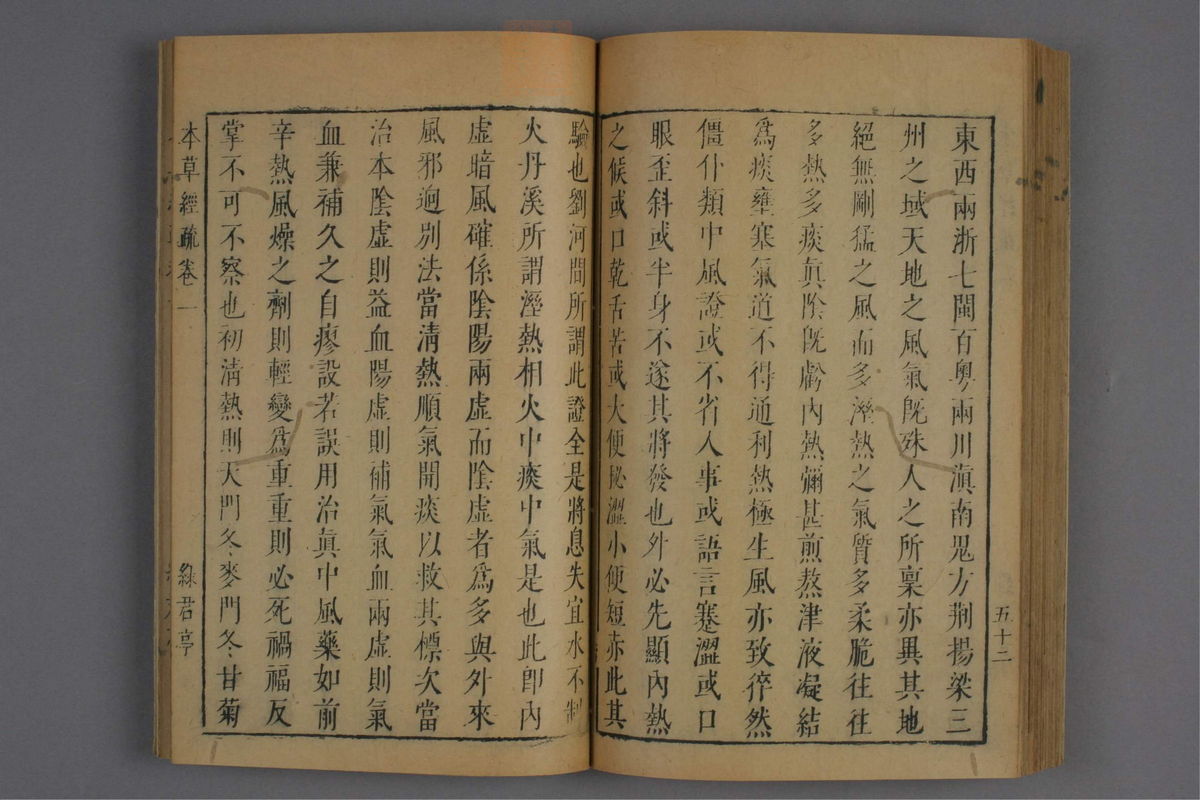 東西兩浙七閩百粵兩川滇南鬼方荆揚梁三
州之域天地之風氣旣殊人之所稟亦異其地
絕無剛猛之風而多溼熱之氣質多柔脆往往
多熱多痰眞陰旣虧內熱彌甚煎熬津液凝結
爲痰壅塞氣道不得通利熱極生風亦致猝然
僵仆類中風證或不省人事或語言蹇澀或口
眼歪斜或半身不遂其將發也外必先顯內熱
之候或口乾舌苦或大便秘澀小便短赤此其
五十二
驗也劉河間所謂此證全是將息失宜水不制
火丹溪所謂溼熱相火中痰中氣是也此卽內
虛暗風確係陰陽兩虛而陰虛者爲多與外來
風邪迥別法當清熱順氣開痰以救其標次當
治本陰虛則益血陽虛則補氣氣血兩虛則氣
血兼補久之自瘳設若誤用治眞中風藥如前
辛熱風燥之劑則輕變爲重重則必死禍福反
掌不可不察也初清熱則天門冬麥門冬甘菊
本草經疏卷一
綠君亭